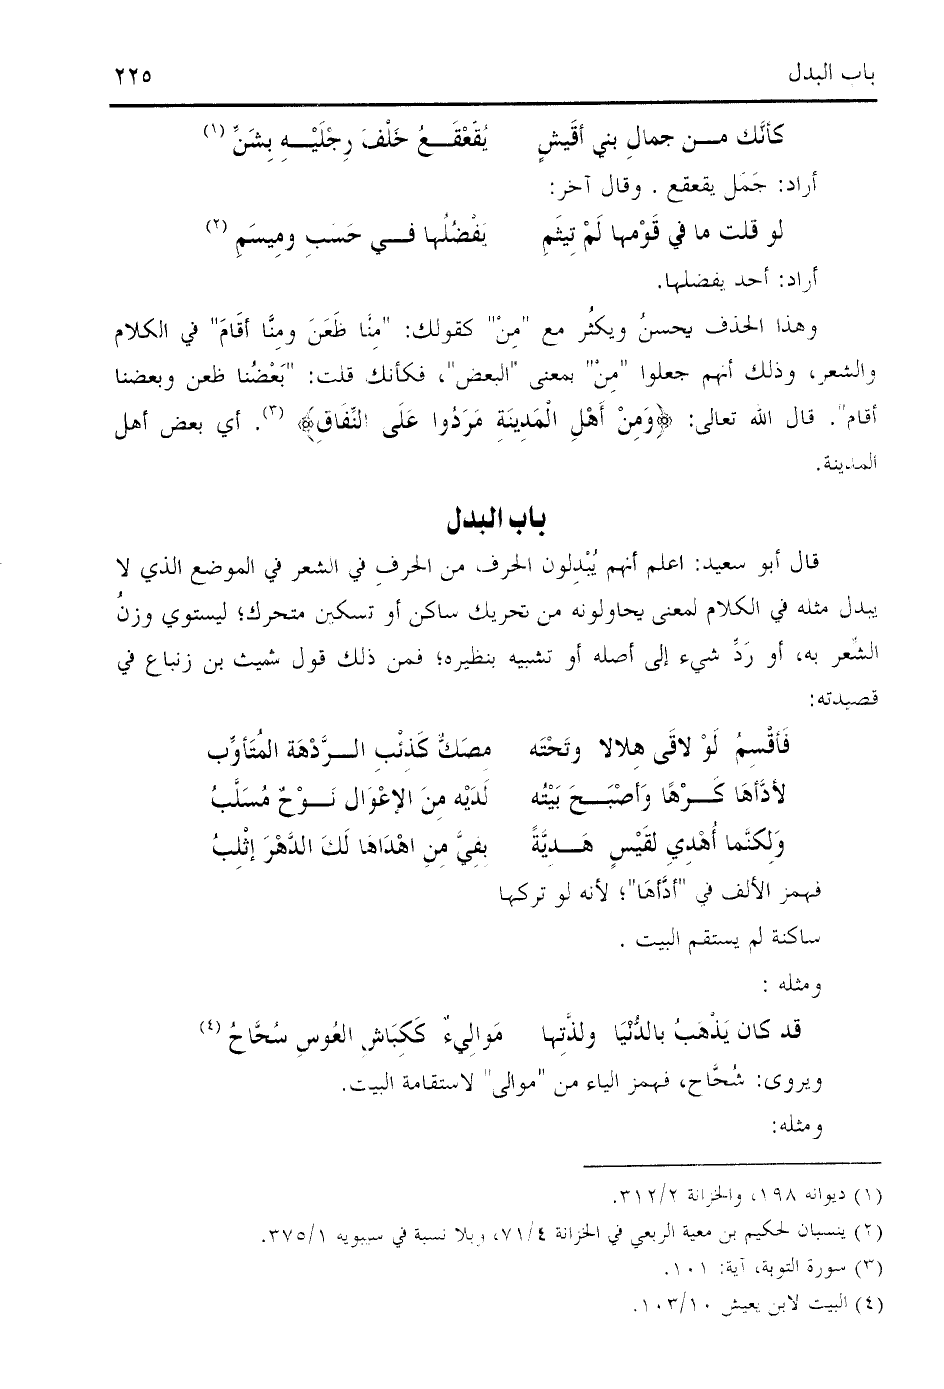 باب البدل ٢٢٥
كأنَّك مـــن جمالِ بني أقَيشٍ يُقَعْقَـــعُ خَلْفَ رِجْلَيْـــهِ بِشَنِّ (١)
أراد: جَمَل يقعقع . وقال آخر:
لو قلت ما في قَوْمِها لَمْ تِيثَمِ يَفْضُلُها فـــي حَسَبٍ وميسَمِ (٢)
أراد: أحد يفضلها.
وهذا الحذف يحسنُ ويكثُر مع "مِنْ" كقولك: "مِنَّا ظَعَنَ ومِنَّا أقَامَ" في الكلام
والشعر، وذلك أنهم جعلوا "مِنْ" بمعنى "البعض"، فكأنك قلت: "بَعْضُنا ظعن وبعضنا
أقام". قال الله تعالى: ﴿وَمِنْ أَهْلِ الْمَدِينَةِ مَرَدُوا عَلَى النِّفَاقِ﴾ (٣). أي بعض أهل
المدينة.
باب البدل
قال أبو سعيد: اعلم أنهم يُبْدِلون الحرف من الحرفِ في الشعر في الموضع الذي لا
يبدل مثله في الكلام لمعنى يحاولونه من تحريك ساكن أو تسكين متحرك؛ ليستوي وزنُ
الشِّعر به، أو رَدِّ شيء إلى أصله أو تشبيه بنظيره؛ فمن ذلك قول شميث بن زنباع في
قصيدته:
فَأقْسِمُ لَوْ لاقَى هِلالا وتَحْتَه مصَكٌّ كَذئْبِ الـــرَّدْهَة المُتَأوِّب
لأدَّأهَا كَـــرْهًا وَأصْبَـــحَ بَيْتُه لَدَيْه منَ الإعْوَال نَـــوْحٌ مُسَلَّبُ
وَلكنَّما أُهْدِي لقَيْسٍ هَـــديَّةً بفِيَّ مِنِ اهْدَاهَا لَكَ الدَّهْرَ إثْلبُ
فهمز الألف في "أدَّأهَا"؛ لأنه لو تركها
ساكنة لم يستقم البيت .
ومثله :
قد كان يَذْهَبُ بالدُّنْيَا ولذَّتِها مَوَاليءٌ كَكبَاشِ العُوسِ سُحَّاحُ (٤)
ويروى: شُحَّاح، فهمز الياء من "موالى" لاستقامة البيت.
ومثله:
(١) ديوانه ١٩٨، والخزانة ٣١٢/٢.
(٢) ينسبان لحكيم بن معية الربعي في الخزانة ٧١/٤، وبلا نسبة في سيبويه ٣٧٥/١.
(٣) سورة التوبة، آية: ١٠١.
(٤) البيت لابن يعيش ١٠٣/١٠.